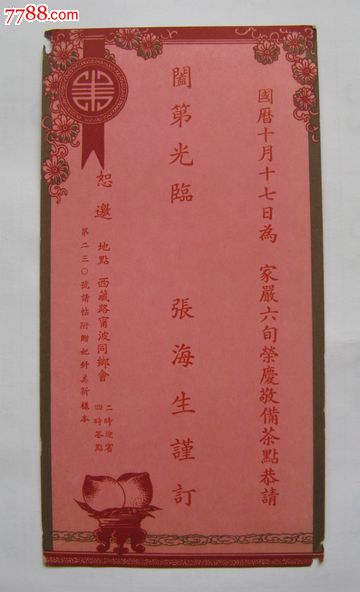 7788.com
國曆十月十七日為 家嚴六旬榮慶敬備茶點恭請
闔第光臨 張海生謹訂
恕邀 地點 西藏路甯波同鄉會 二時迎賓
四時茶點
第二三〇號請帖附贈妃針美新樣本